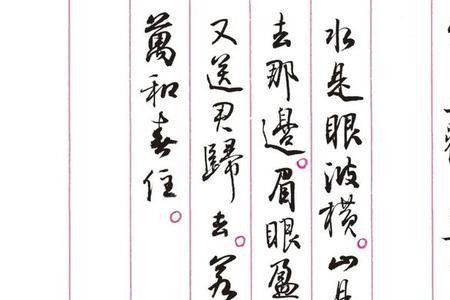 水是眼波橫。山是
去那邊。眉眼盈
又送君歸去。若
萬和春住。